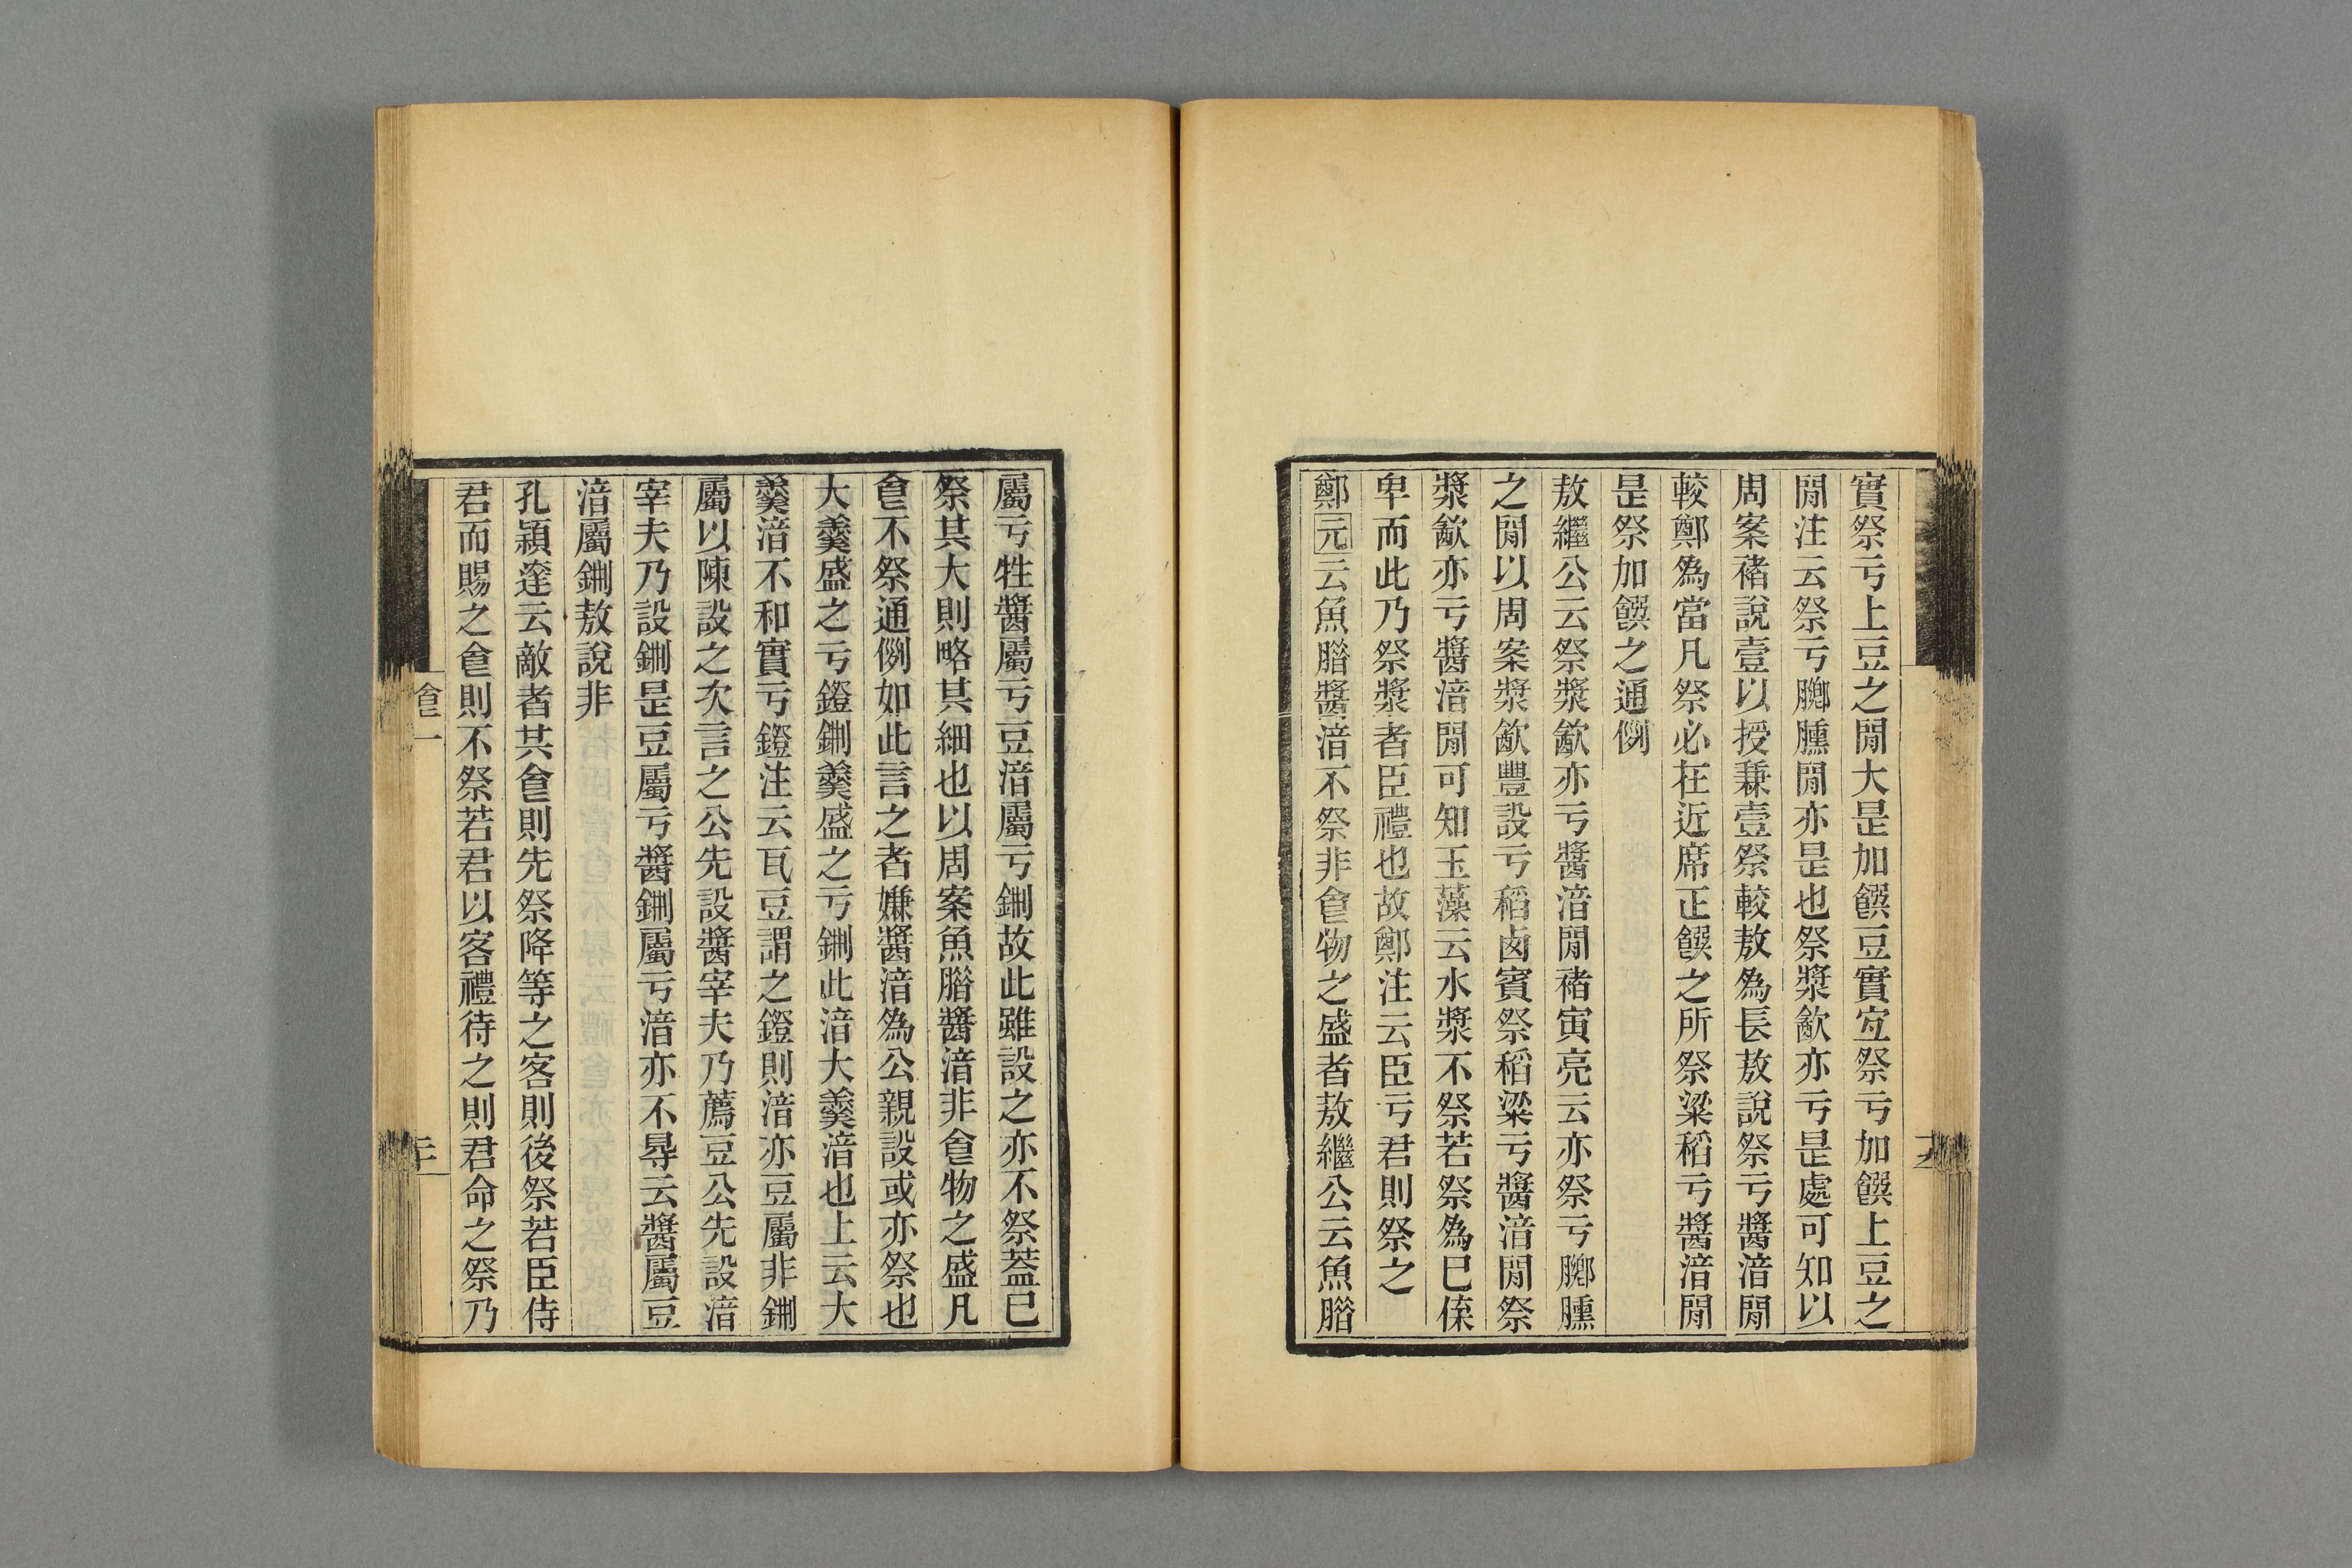 實祭亏上豆之閒大是加饌豆實宐祭亏加饌上豆之
閒注云祭亏膷臐閒亦是也祭漿歠亦亏是處可知以
周案褚說壹以授兼壹祭較敖爲長敖說祭亏醬湆閒
較鄭爲當凡祭必在近席正饌之所祭粱稻亏醬湆閒
是祭加饌之通例
敖繼公云祭漿歠亦亏醬湆閒褚寅亮云亦祭亏膷臐
之閒以周案漿歠豐設亏稻卤賓祭稻粱亏醬湆閒祭
漿歠亦亏醬湆閒可知玉藻云水漿不祭若祭爲巳傣
卑而此乃祭漿者臣禮也故鄭注云臣亏君則祭之
鄭元云魚腊醬湆不祭非食物之盛者敖繼公云魚腊
屬亏牲醬屬亏豆湆屬亏鉶故此雖設之亦不祭葢巳
祭其大則略其細也以周案魚腊醬湆非食物之盛凡
食不祭通例如此言之者嫌醬湆爲公親設或亦祭也
大羹盛之亏鐙鉶羹盛之亏鉶此湆大羹湆也上云大
羹湆不和實亏鐙注云瓦豆謂之鐙則湆亦豆屬非鉶
屬以陳設之次言之公先設醬宰夫乃薦豆公先設湆
宰夫乃設鉶是豆屬亏醬鉶屬亏湆亦不㝵云醬屬豆
湆屬鉶敖說非
孔穎達云敵者共食則先祭降等之客則後祭若臣侍
君而賜之食則不祭若君以客禮待之則君命之祭乃
食一